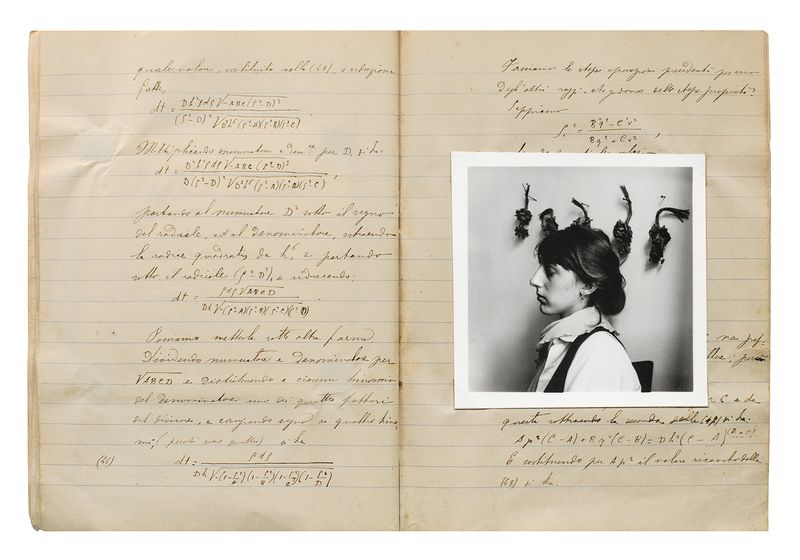 quale valore, sostituito nella (43), e riduzioni
fatte,
dt =
Multiplicando numeratore e den.re per D, si ha:
dt =
portando al numeratore D² sotto il segno
del radicale, ed al denominatore, estraendo
la radice quadrata da h⁶, e portando
sotto il radicale (ρ²-D), e riducendo:
dt = ρdρ√ABCD / Dh√-(ρ²-A)(ρ²-B)(ρ²-C)(ρ²-D)
Possiamo metterla sotto altra forma.
Dividendo numeratore e denominatore per
√ABCD e distribuendo a ciascun binomio
del denominatore uno dei quattro fattori
del divisore, e cangiando segno ai quattro bino
mi, (perchè sono quattro) si ha
(46) dt = ρdρ / Dh√-(1-ρ²/A)(1-ρ²/B)(1-ρ²/C)(1-ρ²/D)
Facciamo le stesse operazioni precedenti per uno
degli altri raggi, che godono delle stesse proprietà.
Sappiamo
C e da
questa sottraendo la seconda delle si ha:
Ap²(C-A)+Bq²(C-B)=Dh²(C-
E sostituendo per Ap² il valore ricavato dalla
(48) si ha: